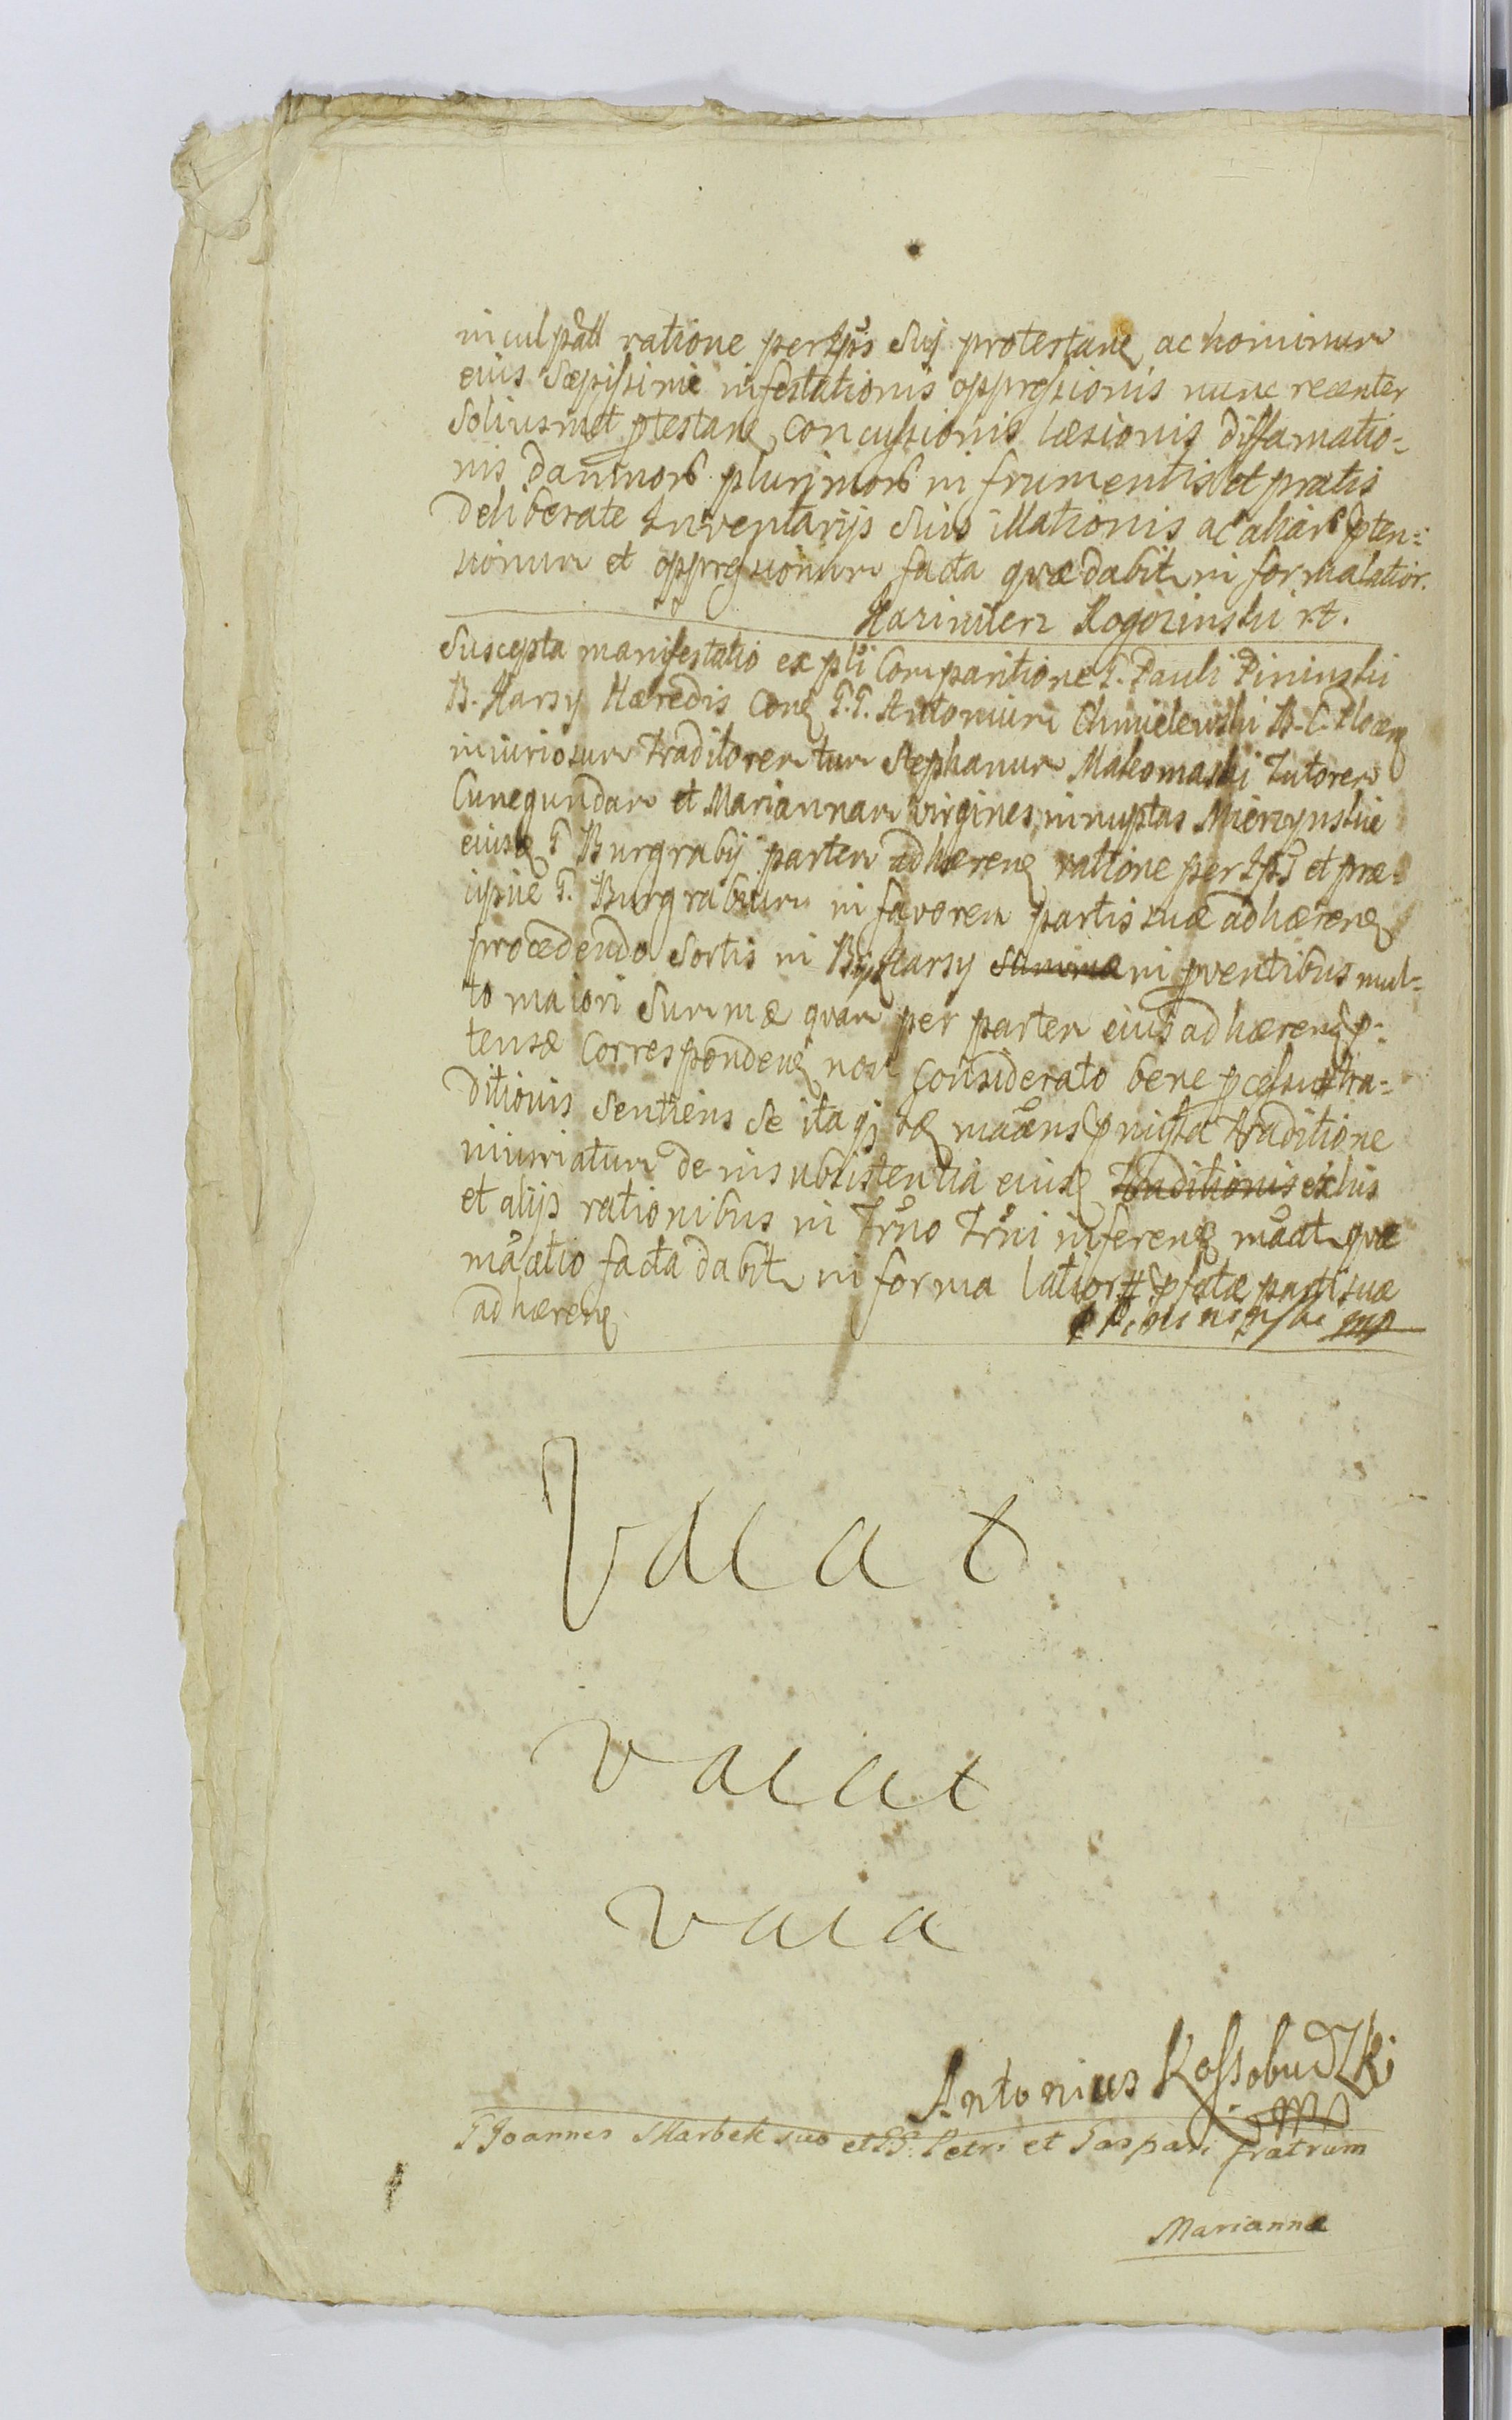 inculpatt ratione per Ips Suj protestan ac hominum
eius Sæpissime infestationis oppressionis nunc recenter
Soliusmet ptestan concussionis læsionis diffamatio=
nis damnor plurimor in frumentis et pratis
deliberate Inventarijs suis illationis ac aliar pten=
sionum et oppressionum facta quæ dabit in forma latior.
Kazimierz Rogozinski r.t.
Suscepta manifestatio ex psti Comparitione G. Pauli Pininski
B. Karsy Hæredis Con G.G. Antonium Chmielewski B. C.
iniuriosum traditorem tum Stephanum Makomaski Tutorem
Cunegundam et Mariannam virgines innuptas Mierzynskie
eiusq G Burgrabij partem adhæren ratione per Ips et præ=
cipue G. Burgrabium in favorem partis suæ adhæren
procedendo Sortis in B. Karsy summæ in pventibus mul=
to maiori Summæ quam per partem eius adhæren p=
tensæ Corresponden non Considerato bene pcessu tra=
ditionis sentiens se itaq maans iniusta traditione
iniuriatum de insubsistentia eiusq traditionis ex his
et alijs rationibus in Trno Trni inferen maat quæ
maatio facta dabit in forma latior # pfatæ parti suæ
adhæren
Pininski mp
Vacat
vacat
vaca
Antonius Kossobudzki
mp
G Joannes Skarbek suo et GG. Petri et Gaspari fratrum
Mariannæ